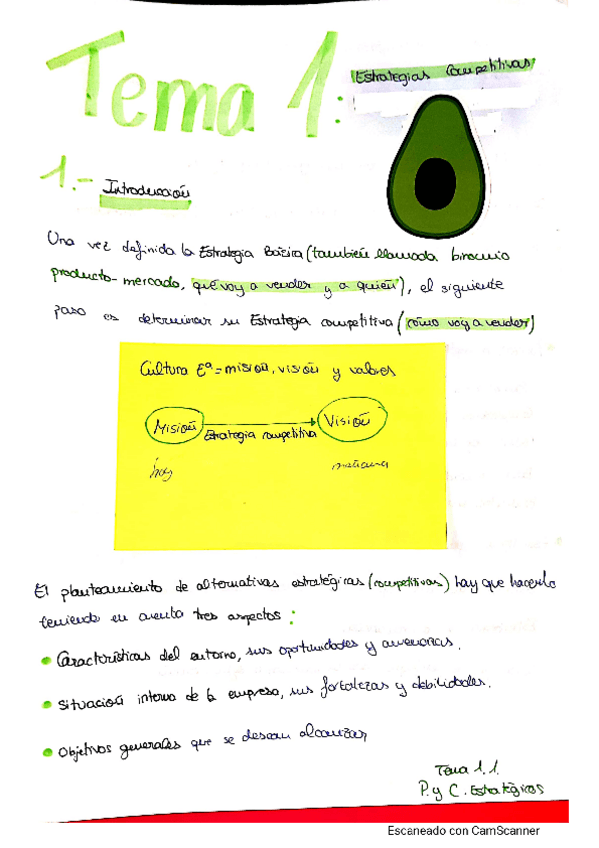 Tema 1:
Estrategias Competitivas
1.- Introducción
Una vez definida la Estrategia Básica (también llamada binomio
producto-mercado, qué voy a vender y a quién), el siguiente
paso es determinar su Estrategia competitiva (cómo voy a vender)
Cultura Eª = misión, visión y valores
Misión
Estrategia competitiva
Visión
hoy
mañana
El planteamiento de alternativas estratégicas (competitivas) hay que hacerlo
teniendo en cuenta tres aspectos:
• Características del entorno, sus oportunidades y amenazas.
• Situación interna de la empresa, sus fortalezas y debilidades.
• Objetivos generales que se desean alcanzar
Tema 1.1.
P. y C. Estratégicos
Escaneado con CamScanner